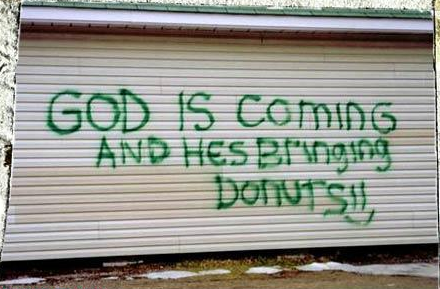 GOD IS COMING
AND HES BringinG
DONUTS!!